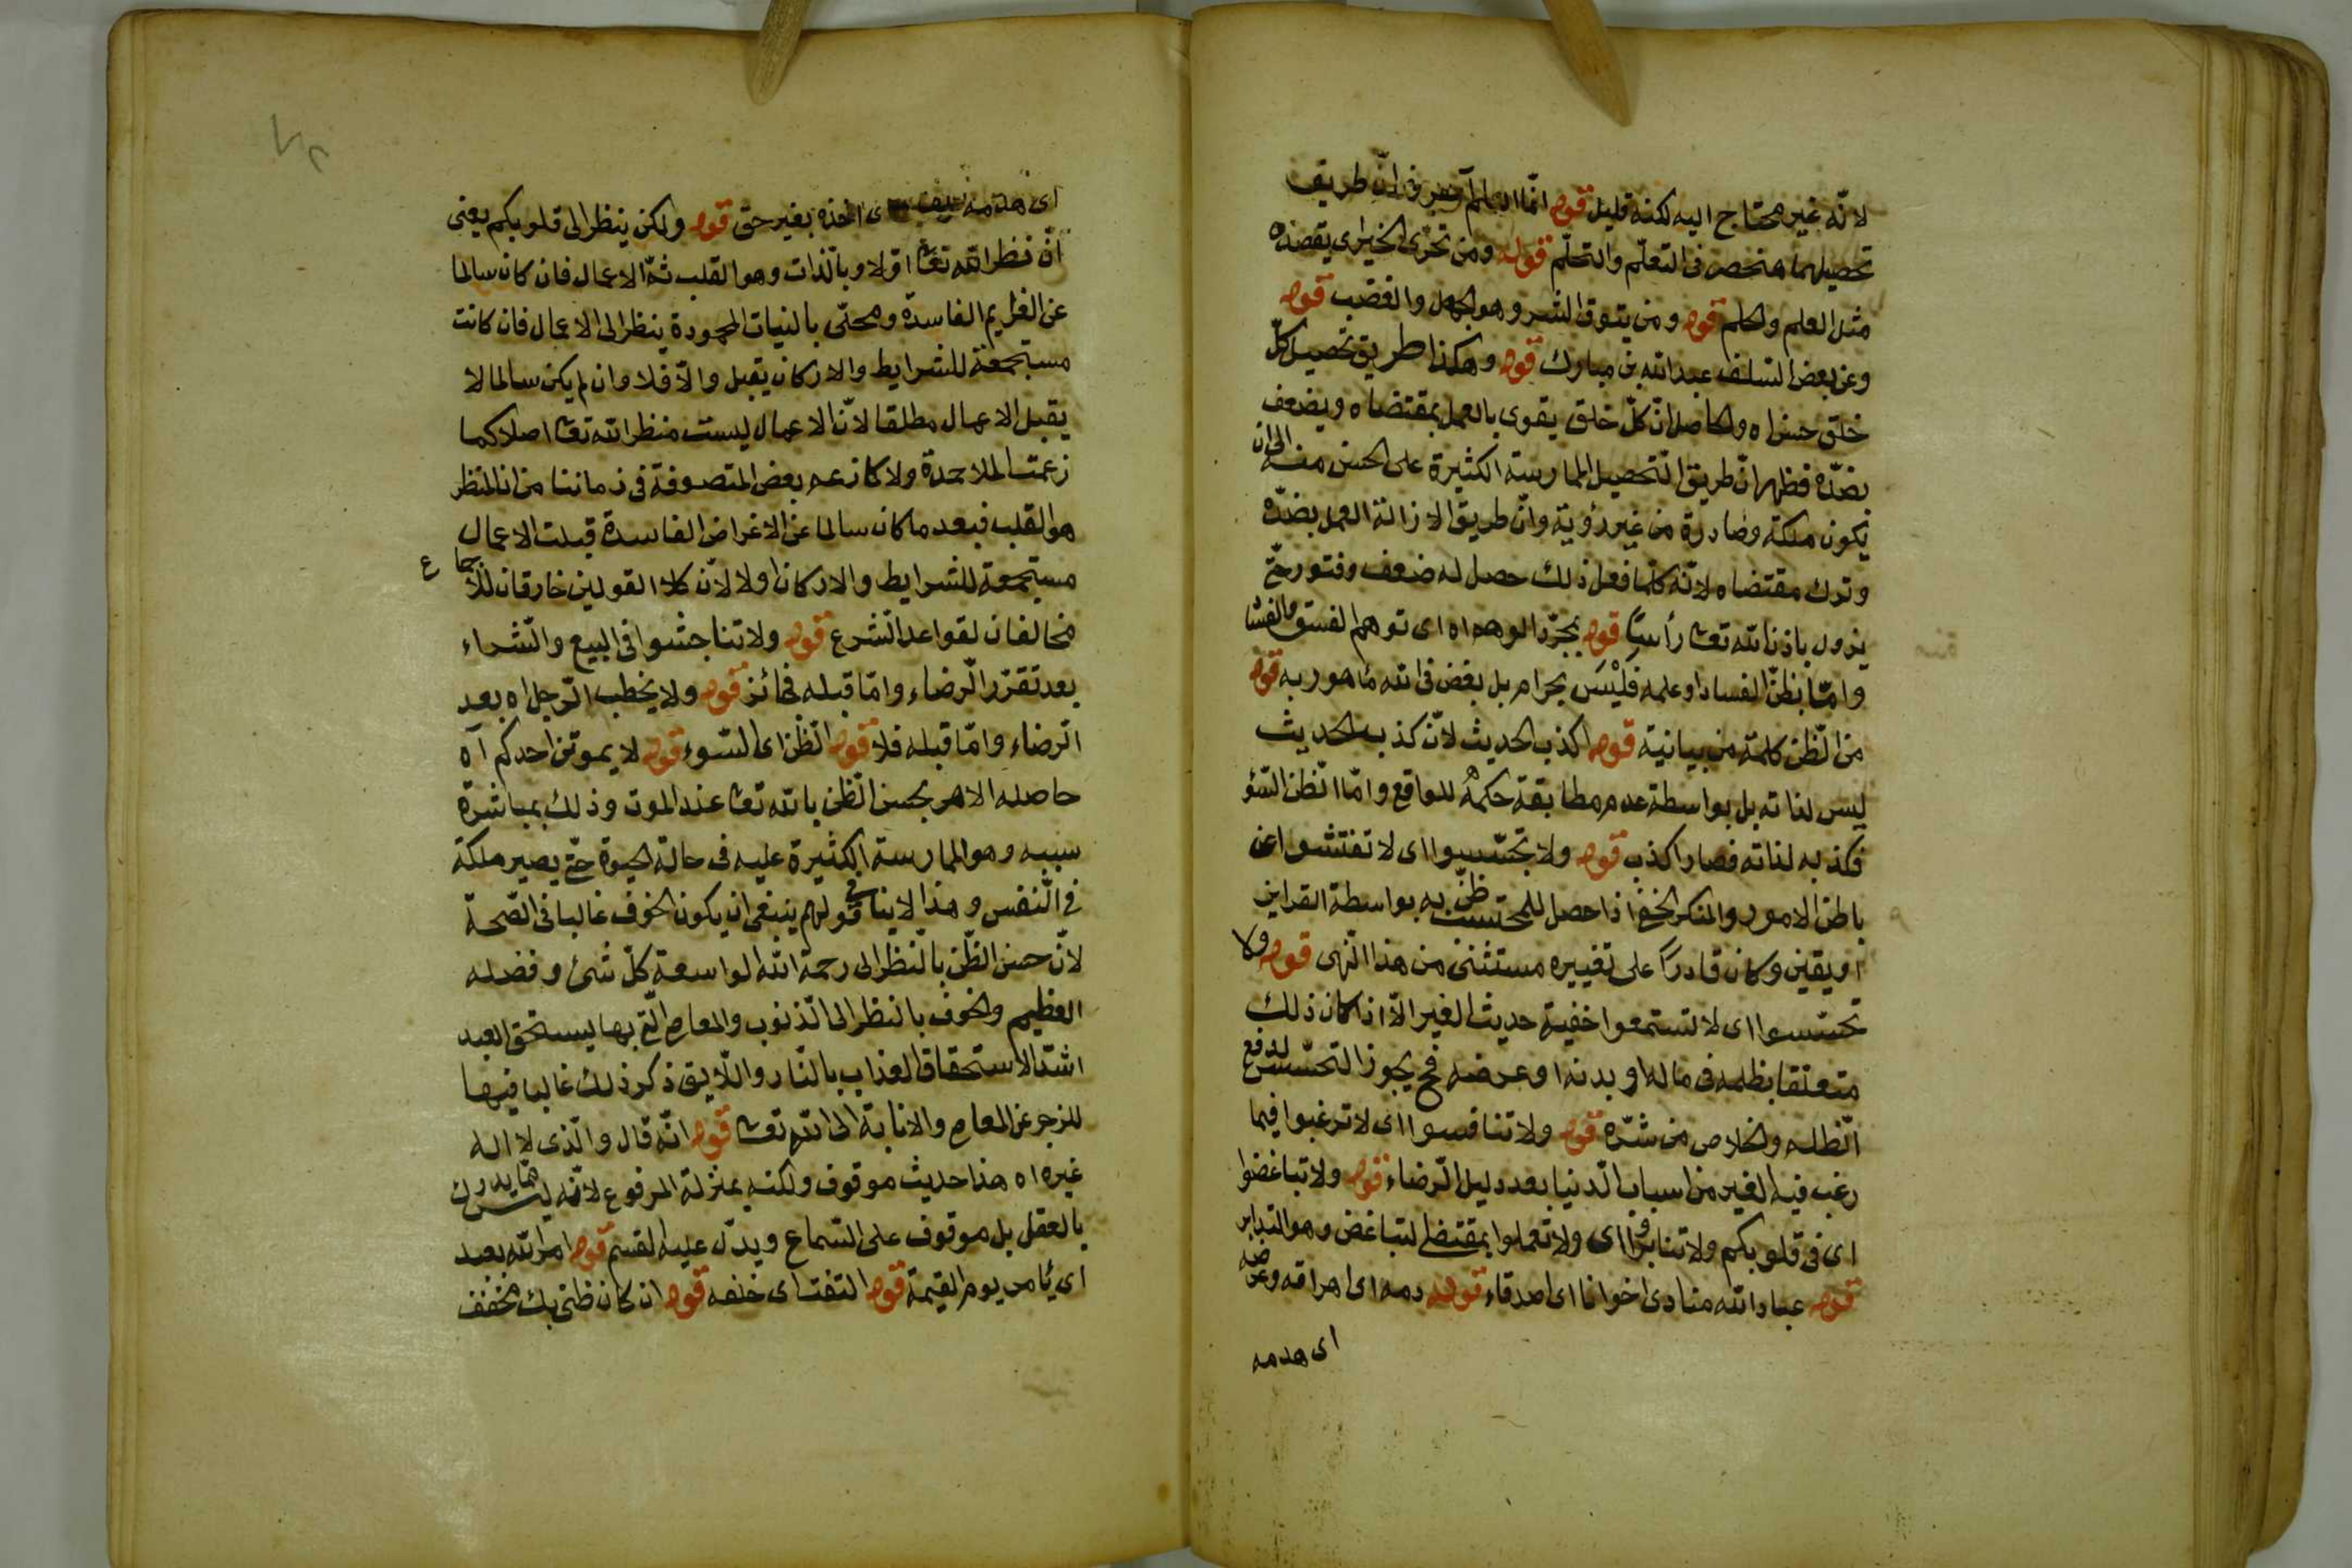 لانّه غير محتاج اليه لكنه قليل قوله انّما العلم آه فى انّ طريق
تحصيلهما منحصر فى التعلّم والتحلّم قوله ومن تحرّى الخير اى يقصده
مثل العلم والحلم قوله ومن يتوق الشر وهو الجهل والغضب قوله
وعن بعض السلف عبد الله بن مبارك قوله وهكذا طريق تحصيل كلّ
خلق حسن اه والحاصل انّ كلّ خلق يقوى بالعمل بمقتضاه ويضعف
بضدّه فظهر انّ طريق التحصيل الممارسة الكثيرة على الحسن منه الى ان
يكون ملكة وصادرة من غير رؤية وانّ طريق الازالة العمل بضدّه
وترك مقتضاه لانّه كلما فعل ذلك حصل له ضعف وفتور حتّى
يزول باذن الله تعا رأسًا قوله بمجرّد الوهم اه اى توهم الفسق والفساد
وامّا بظنّ الفساد او علمه فَلَيْسَ بحرام بل بغض فى الله مأمور به قوله
من الظّنّ كلمة من بيانية قوله اكذب الحديث لانّ كذب الحديث
ليس لذاته بل بواسطة عدم مطابقة حكمهُ للواقع وامّا الظّن السّوء
فكذبه لذاته فصار اكذب قوله ولا تجسّسوا اى لا تفتشوا عن
باطن الامور والمنكر الخفى اذا حصل للمحتسب ظنّ به بواسطة القراين
او يقين وكان قادرًا على تغييره مستثنى من هذا النّهى قوله ولا
تحسّسوا اى لا تستمعوا خفية حديث الغير الاّ اذا كان ذلك
متعلقا بظلمه فى ماله او بدنه او عرضه فح يجوز التحسّس لدفع
الظلمه والخلاص من شرّه قوله ولا تنافسوا اى لا ترغبوا فيما
رغب فيه الغير من اسباب الدّنيا بعد دليل الرّضاء قوله ولا تباغضوا
اى فى قلوبكم ولا تدابروا اى ولا تعملوا بمقتضى التباغض وهو التدابر
قوله عباد الله منادى اخوانا اى اصدقاء قوله دمه اى اهراقه وعرضه
اى هدمه
اى هدمه اى اخذه بغير حق قوله ولكن ينظر الى قلوبكم يعنى
انّ نظر الله تعا اوّلا وبالذات وهو القلب ثمّ الاعمال فان كان سالما
عن العزايم الفاسدة ومحلّى بالنيات المحمودة ينظر الى الاعمال فان كانت
مستجمعة للشرايط والاركان يقبل والاّ فلا وان لم يكن سالما لا
يقبل الاعمال مطلقا لانّ الاعمال ليست منظر الله تعا اصلا كما
زعمت الملاحدة ولا كما زعم بعض المتصوفة فى زماننا من ان المنظر
هو القلب فبعد ما كان سالما عن الاغراض الفاسدة قبلت الاعمال
مستجمعة للشرايط والاركان اولا لانّ كلا القولين خارقان للاجماع
مخالفان لقواعد الشرع قوله ولا تناجشوا فى البيع والشراء
بعد تقرّر الرّضاء وامّا قبله فجائز قوله ولا يخطب الرّجل اه بعد
الرّضاء وامّا قبله فلا قوله الظّن اى السّوء قوله لا يموتن احدكم آه
حاصله الامر بحسن الظّن بالله تعا عند الموت وذلك بمباشرة
سببه وهو الممارسة الكثيرة عليه فى حالة الحيوة حتّى يصير ملكة
فى النّفس وهذا لا ينافى قولهم ينبغى ان يكون الخوف غالبا فى الصّحة
لانّ حسن الظّنّ بالنّظر الى رحمة الله الواسعة كلّ شئ وفضله
العظيم والخوف بالنظر الى الذنوب والمعاصى الّتى بها يستحق العبد
اشدّ الاستحقاق العذاب بالنّار واللّايق ذكر ذلك غالبا فيها
للزجر عن المعاصى والانابة الى الله تعا قوله انّه قال والّذى لا اله
غيره اه هذا حديث موقوف ولكنه بمنزلة المرفوع لانّه ليس ممّا يدرك
بالعقل بل موقوف على السّماع ويدلّ عليه القسم قوله امر الله بعبد
اى يأمر يوم القيمة قوله التفت اى خلفه قوله ان كان ظنى بك مخفف